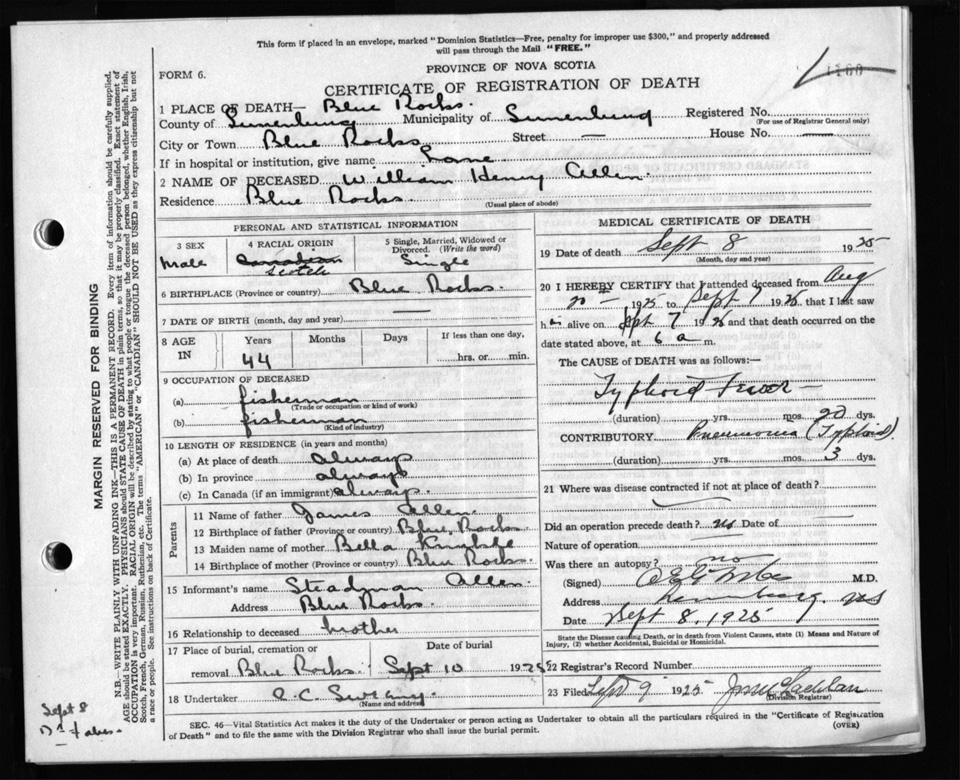 This form if placed in an envelope, marked "Dominion Statistics—Free, penalty for improper use $300," and properly addressed
will pass through the Mail "FREE."
PROVINCE OF NOVA SCOTIA
FORM 6.
CERTIFICATE OF REGISTRATION OF DEATH
1 PLACE OF DEATH— Blue Rocks.
County of Lunenburg Municipality of Lunenburg Registered No.
(For use of Registrar General only)
City or Town Blue Rocks Street — House No. —
If in hospital or institution, give name
2 NAME OF DECEASED William Henry Allen.
Residence Blue Rocks. (Usual place of abode)
PERSONAL AND STATISTICAL INFORMATION
3 SEX
Male
4 RACIAL ORIGIN
Canadian
Scotch
5 Single, Married, Widowed or
Divorced. (Write the word)
Single
6 BIRTHPLACE (Province or country) Blue Rocks.
7 DATE OF BIRTH (month, day and year) —
8 AGE IN
Years Months Days If less than one day,
44 hrs. or min.
9 OCCUPATION OF DECEASED
(a) fisherman
(Trade or occupation or kind of work)
(b) fisherman
(Kind of industry)
10 LENGTH OF RESIDENCE (in years and months)
(a) At place of death always
(b) In province always
(c) In Canada (if an immigrant) always.
Parents
11 Name of father James Allen.
12 Birthplace of father (Province or country) Blue Rocks
13 Maiden name of mother Bella
14 Birthplace of mother (Province or country) Blue Rocks
15 Informant's name Steadman Allen.
Address Blue Rocks.
16 Relationship to deceased brother
17 Place of burial, cremation or Date of burial
removal Blue Rocks. Sept 10 1925
18 Undertaker
(Name and address)
MEDICAL CERTIFICATE OF DEATH
19 Date of death Sept 8 1925
(Month, day and year)
20 I HEREBY CERTIFY that I attended deceased from Aug
20 — 1925 to Sept 7 1925, that I last saw
h alive on Sept 7 1925 and that death occurred on the
date stated above, at 6 a m.
The CAUSE of DEATH was as follows:—
Typhoid Fever —
(duration) yrs. mos. 20 dys.
CONTRIBUTORY Pneumonia (Typhoid)
(duration) yrs. mos. 3 dys.
21 Where was disease contracted if not at place of death?
Did an operation precede death? no Date of
Nature of operation
Was there an autopsy? no
(Signed) M.D.
Address Lunenburg, NS
Date Sept 8, 1925
State the Disease causing Death, or in death from Violent Causes, state (1) Means and Nature of
Injury, (2) whether Accidental, Suicidal or Homicidal.
22 Registrar's Record Number
23 Filed Sept 9 1925
(Division Registrar)
SEC. 46—Vital Statistics Act makes it the duty of the Undertaker or person acting as Undertaker to obtain all the particulars required in the "Certificate of Registration
of Death" and to file the same with the Division Registrar who shall issue the burial permit. (OVER)
MARGIN RESERVED FOR BINDING
N.B.—WRITE PLAINLY WITH UNFADING INK—THIS IS A PERMANENT RECORD. Every item of information should be carefully supplied.
AGE should be stated EXACTLY. PHYSICIANS should STATE CAUSE OF DEATH in plain terms, so that it may be properly classified. Exact statement of
OCCUPATION is very important. RACIAL ORIGIN will be described by stating to what people or tongue the deceased person belonged, whether English, Irish,
Scotch, French, German, Russian, Ruthenian, etc. The terms "AMERICAN" or "CANADIAN" SHOULD NOT BE USED as they express citizenship but not
a race or people. See instructions on back of Certificate.
Sept 8